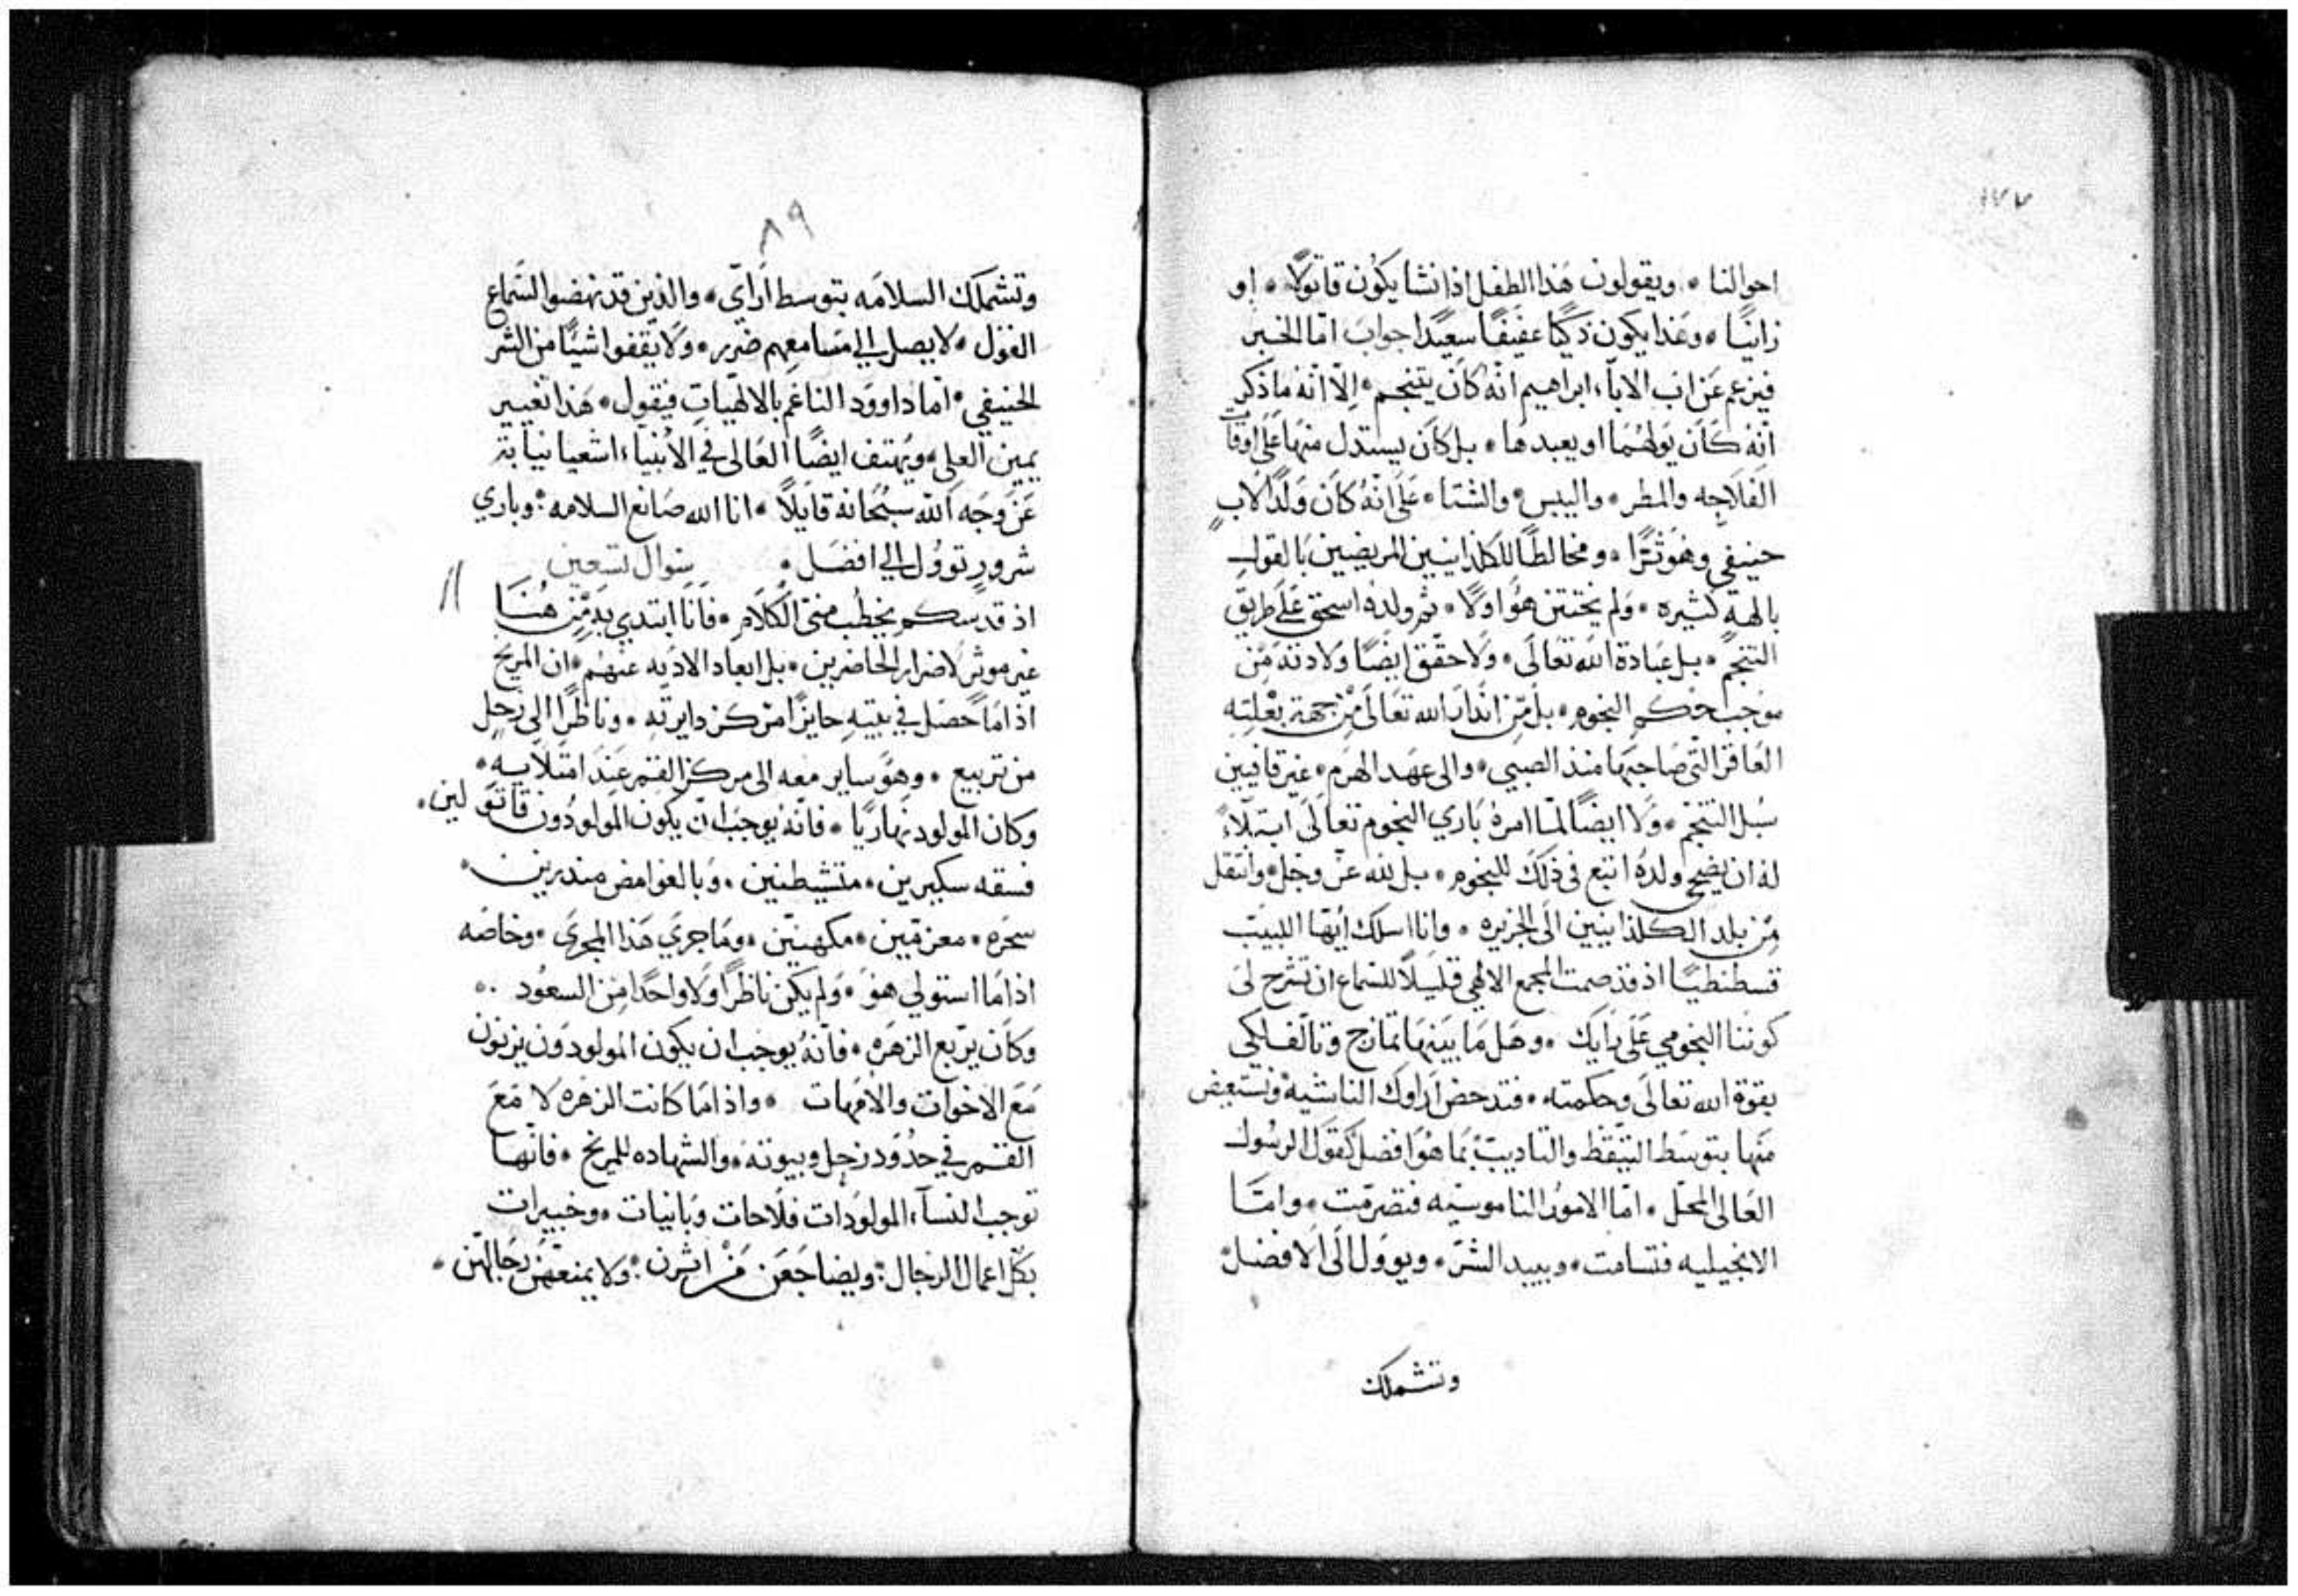 ١٧٧
احوالنا • ويقولون هَذا الطفل اذا نشا يكُون قاتولًا • او
زانيًا • وعَذا يكون ذكيًا عفيفًا سعيًدا جوابَ امّا الخبر
فيزعم عَن اب الابآء ابراهيم انّه كان يتنجم • اِلّا انّه ما ذكر
انّه كَان يولهُما او يعبدها • بل كان يستدل منهَا عَلى اوقات
الفلاحه والمطر • واليبس • والشتا • عَلى انّهُ كان وَلدًا لاب
حنيفي وهَوثرًا • ومخالطًا للكلدانيين المريضين بالقول
بالهةٍ كثيره • وَلم يختتن هوُ اوّلًا • ثم ولده اسحق عَلى طريق
التنجّم • بل عبادة الله تعَالى • وَلا حقّق ايضًا وَلادته مِن
موجب حكم النجوم • بل مِن انذار الله تعالى مِن جهة بعْلته
العَاقر التّي صَاحبها منذ الصبي • والى عهَد الهَرم • غير قافيين
سُبل التنجّم • وَلا ايضًا لمّا امرهُ بَاري النجوم تعَالى ابتلآءً
له ان يضحي ولدهُ اتبع في ذلك للنجوم • بل لله عزّ وجلّ • وانتقل
مِن بلد الكلدانيين الَى الجزيره • وانا اسلك ايّها اللبيبَ
قسطنطيًا اذ قد صمت المجمع الالهي قليلًا للسّماع ان تشرح لىَ
كوننا النجومي عَلى رَايك • وهَل مَا بينهَا تمازج وتالف لكي
بقوة الله تعالى وحكمته • فتدحض اراوك الناشيه وتستعيض
منها بتوسَط التيقّظ والتاديبّ بمَا هُوَ افضل كقول الرسُول
العَالى المحلّ • امّا الامورُ الناموسيّه فتصرّمت • وامّا
الانجيليه فتسامت • ويبيد الشرّ • ويوولَ الَى الافضل
وتشملك
٨٩
وتشملك السلامَه بتوسط ارَاي • والذين قد نهضوا لسَماع
القول • لا يصل الي مسَامعِهم ضرر • وَلا يقفوا شيًا من الشر
الحنيفي • امّا داوود الناغم بالالهَيات فيقول • هَذا تغيير
يمين العلي • ويَهتف ايضًا العَالى في الانبيآء اشعيا نيابة
عَن وَجه الله سبُحَانه قايلًا • انا الله صَانع السلامه • وباري
شرورٍ توؤول الي افضَل • سوال تسعين
اذ قد سكم بخطب منيّ الكَلَام • فَانَا ابتدي به مِن هُنَا
غير موثرٍ لاضرار الحاضرين • بل ابعاد الاديه عنهُم • ان المريخ
اذا مَا حصَل في بيتِه حايزًا مركز دايرته • وناظرًا الى زحل
من تربيع • وهوَ ساير معه الى مركز القمر عِند امتلايه •
وكان المولود نهاريًا • فانّهُ يوجب ان يكون المولودُون قاتولين •
فسقه سكيرين • متشيطنين • وَبالغوامض مندرين •
سحَره • معزمَين • مكهنيّن • ومَا جريَ هَذا المجرىَ • وخاصَه
اذا مَا استولي هوَ • وَلم يكن ناظرًا وَلا واحدًا مِن السعوُد •
وكَان يربّع الزهَره • فانّهُ يوجب ان يكون المولودَون يزنون
مَعَ الاخوات والامّهات • واذا مَا كانت الزهَره لَا مَعَ
القمر في حدُود زحل وبيوته • والشهاده للمريخ • فانّهَا
توجب النسآء المولوَدات فلاحات وبَانيات • وخبيرات
بكلّ اعمال الرجال • ويضاجَعَن مَنْ اثرن • ولا يمنعَهَن رجَالهّن •